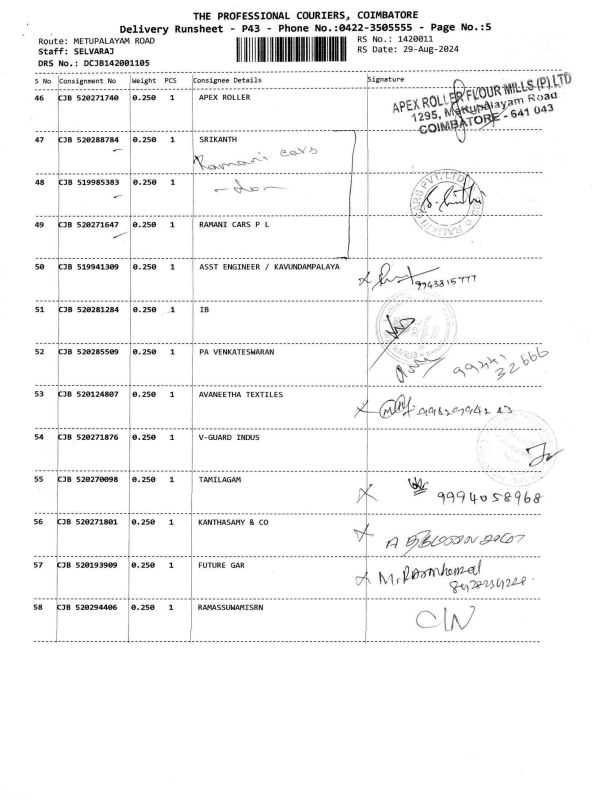 THE PROFESSIONAL COURIERS, COIMBATORE
Delivery Runsheet - P43 - Phone No.:0422-3505555 - Page No.:5
Route: METUPALAYAM ROAD RS No.: 1420011
Staff: SELVARAJ RS Date: 29-Aug-2024
DRS No.: DCJB142001105
S No Consignment No Weight PCS Consignee Details Signature
46 CJB 520271740 0.250 1 APEX ROLLER
APEX ROLLER FLOUR MILLS (P) LTD
1295, Mettupalayam Road
COIMBATORE - 641 043
47 CJB 520288784 0.250 1 SRIKANTH
Ramani cars
48 CJB 519985383 0.250 1
49 CJB 520271647 0.250 1 RAMANI CARS P L
50 CJB 519941309 0.250 1 ASST ENGINEER / KAVUNDAMPALAYA
9943815777
51 CJB 520281284 0.250 1 IB
52 CJB 520285509 0.250 1 PA VENKATESWARAN
32666
53 CJB 520124807 0.250 1 AVANEETHA TEXTILES
54 CJB 520271876 0.250 1 V-GUARD INDUS
55 CJB 520270098 0.250 1 TAMILAGAM
9994058968
56 CJB 520271801 0.250 1 KANTHASAMY & CO
57 CJB 520193909 0.250 1 FUTURE GAR
58 CJB 520294406 0.250 1 RAMASSUWAMISRN